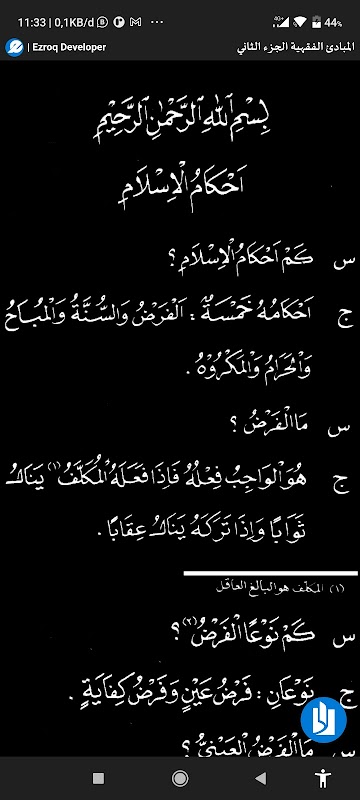 11:33 | 0,1KB/d
44%
| Ezroq Developer
المبادئ الفقهية الجزء الثاني
بِسْمِ اللهِ الرَّحْمٰنِ الرَّحِيْمِ
اَحْكَامُ الْاِسْلَامِ
س كَمْ اَحْكَامُ الْاِسْلَامِ ؟
ج اَحْكَامُهُ خَمْسَةٌ : اَلْفَرْضُ وَالسُّنَّةُ وَالْمُبَاحُ
وَالْحَرَامُ وَالْمَكْرُوْهُ .
س مَاالْفَرْضُ ؟
ج هُوَ الْوَاجِبُ فِعْلُهُ فَاِذَا فَعَلَهُ الْمُكَلَّفُ (١) يَنَالُ
ثَوَابًا وَاِذَا تَرَكَهُ يَنَالُ عِقَابًا .
(١) المكلف هو البالغ العاقل
س كَمْ نَوْعًا الْفَرْضُ (٢) ؟
ج نَوْعَانِ : فَرْضُ عَيْنٍ وَفَرْضُ كِفَايَةٍ .
س مَاالْفَرْضُ الْعَيْنِيُّ ؟